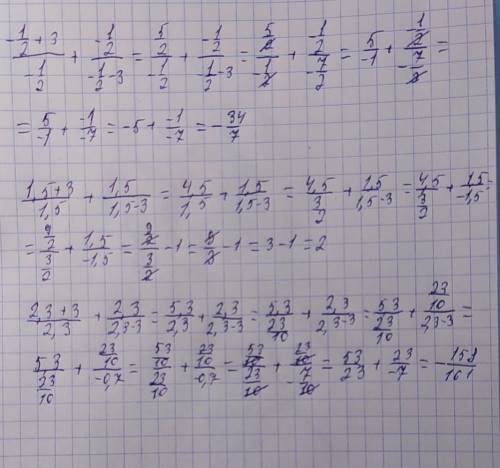 (-1/2 + 3)/(-1/2) + (-1/2)/(-1/2 - 3) = (5/2)/(-1/2) + (-1/2)/(-1/2 - 3) = (5/2)/(-1/2) + (-1/2)/(-7/2) = 5/-1 + (-1/2)/(-7/2) =
= 5/-1 + -1/-7 = -5 + -1/-7 = -34/7
(1,5 + 3)/1,5 + 1,5/(1,5 - 3) = 4,5/1,5 + 1,5/(1,5 - 3) = 4,5/(3/2) + 1,5/(1,5 - 3) = 4,5/(3/2) + 1,5/-1,5 =
= (9/2)/(3/2) + 1,5/-1,5 = (9/2)/(3/2) - 1 = 9/3 - 1 = 3 - 1 = 2
(2,3 + 3)/2,3 + 2,3/(2,3 - 3) = 5,3/2,3 + 2,3/(2,3 - 3) = 5,3/(23/10) + 2,3/(2,3 - 3) = 53/(23/10) + (23/10)/(2,3 - 3) =
5,3/(23/10) + (23/10)/-0,7 = (53/10)/(23/10) + (23/10)/-0,7 = (53/10)/(23/10) + (23/10)/(-7/10) = 53/23 + 23/-7 = -158/161